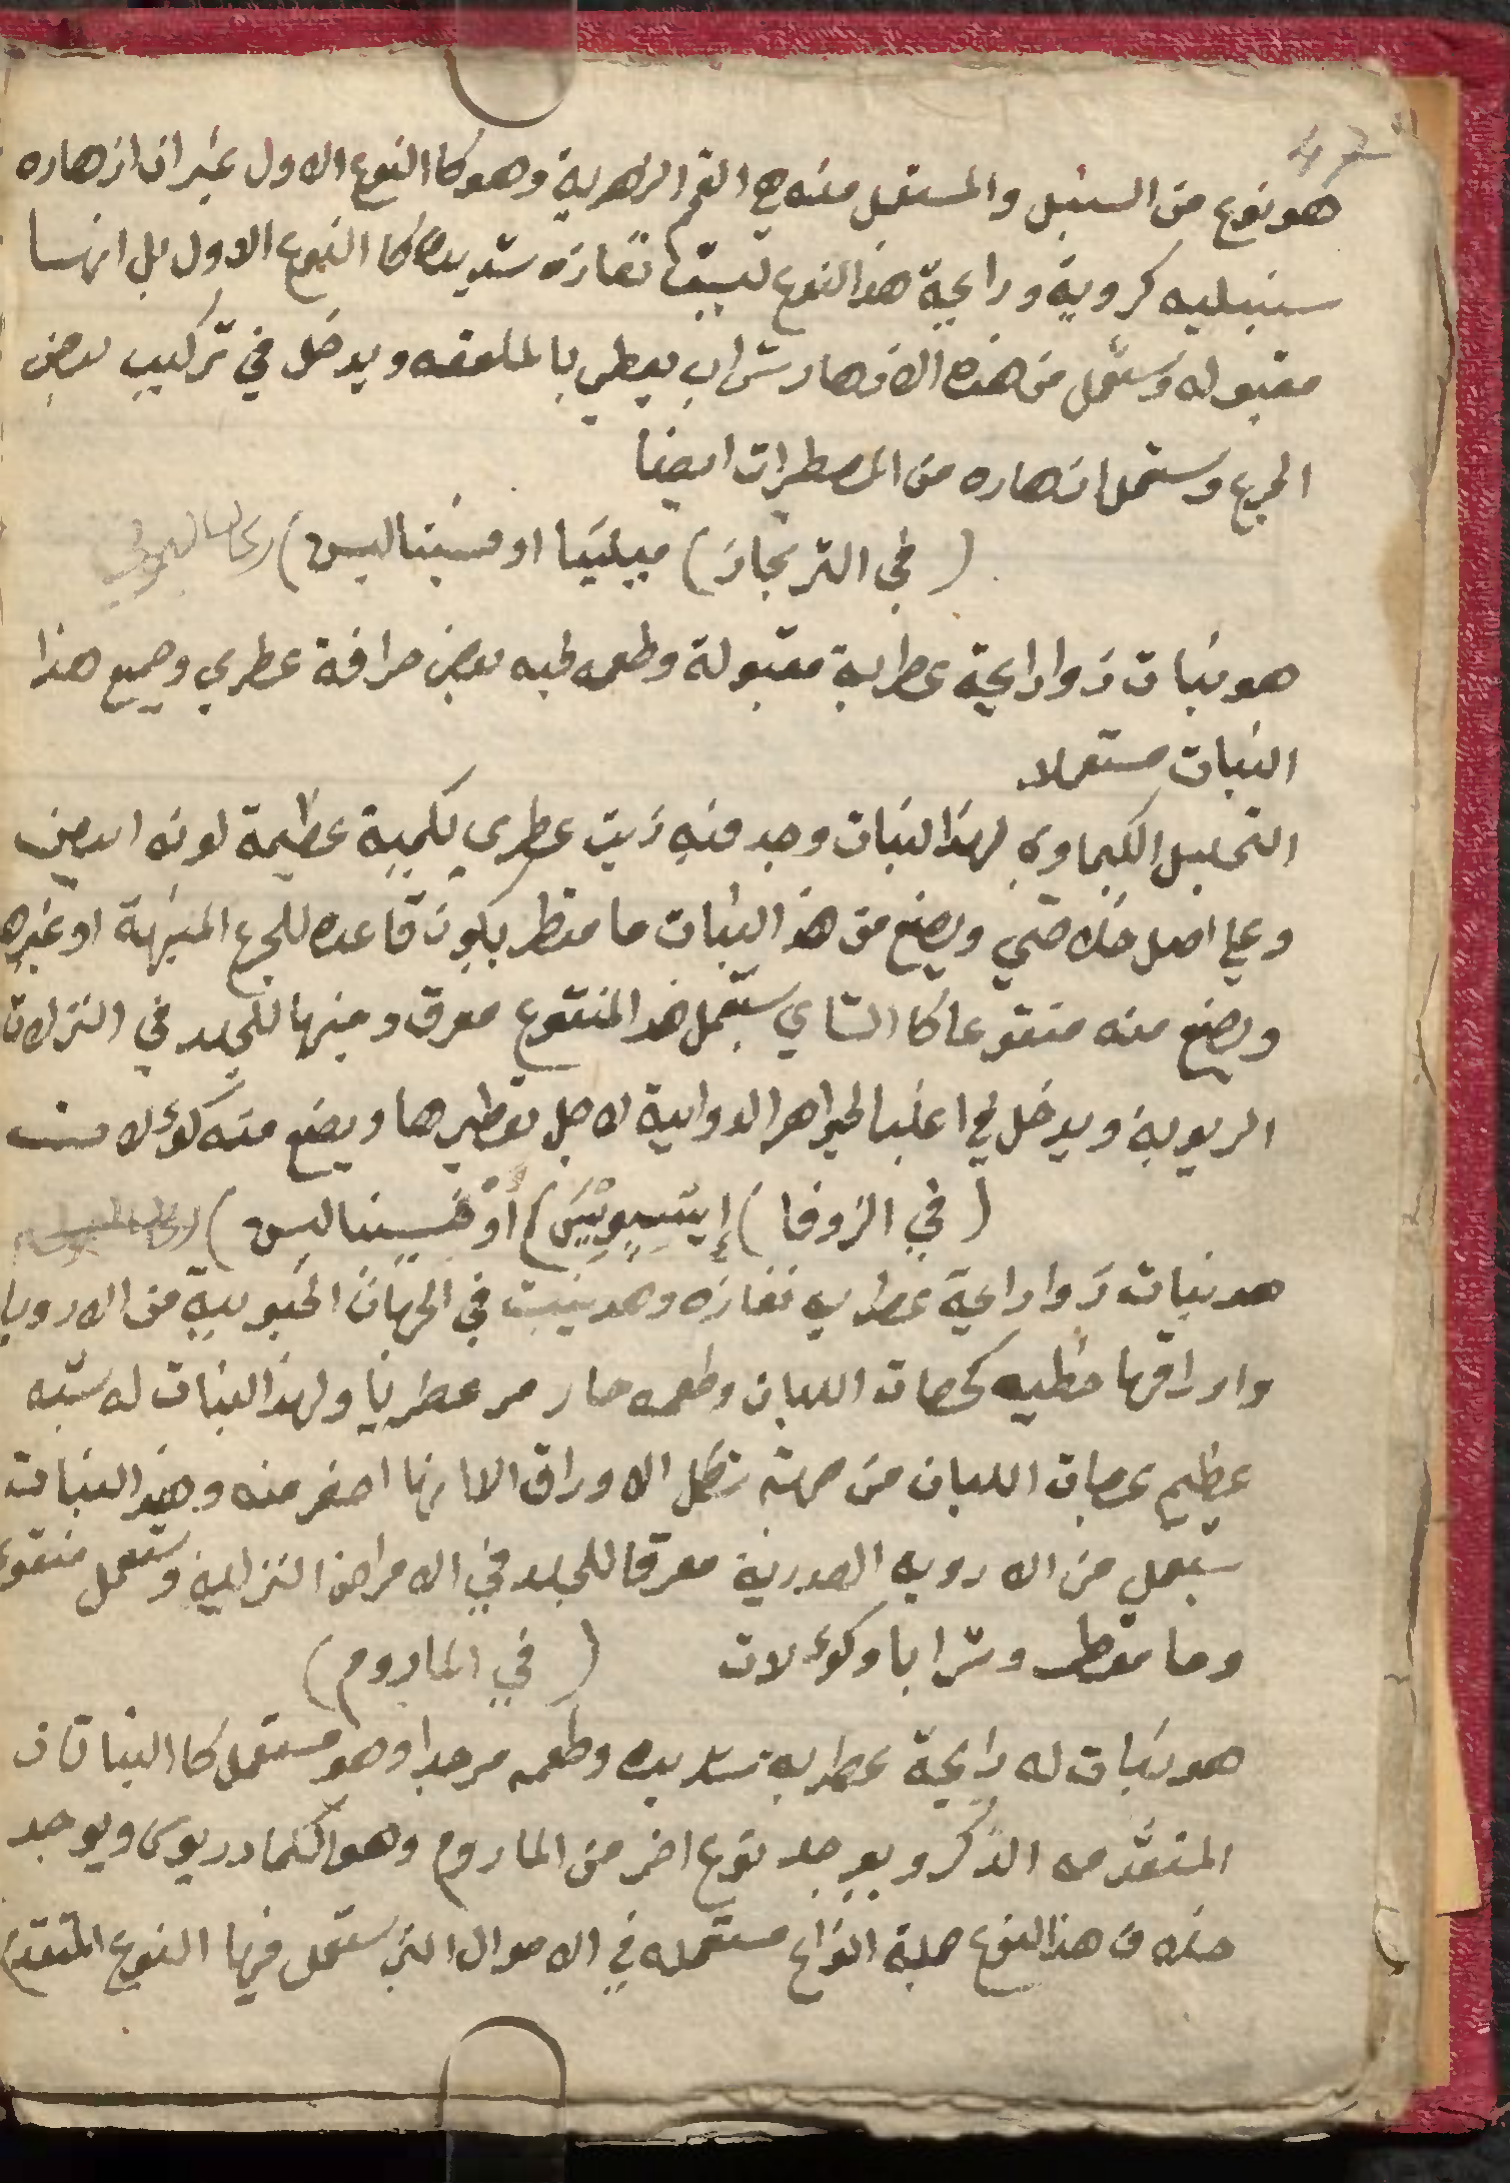 هو نوع من السنبل والمستعمل منه هي القمم الزهرية وهو كا النوع الاول غير ان ازهاره
سنبليه كرويه ورايحة هذا النوع ليست نفاذه شديده كا النوع الاول بل انها
مقبوله ويستعمل من هذه الازهار شراب يعطي بالملعقه ويدخل في تركيب بعض
الجرع وستعمل ازهاره من المعطرات ايضا
(في الترنجان) ميليسا اوفسينالس)
هو نبات ذوا رايحة عطرية مقبولة وطعمه فيه بعض حرافة عطري وجميع هذا
النبات مستعملا
التحليل الكيماوي لهذا النبات وجد منه زيت عطري بكمية عظيمة لونه ابيض
وعلي اصل خلاصي ويصنع من هذا النبات ما مقطر يكون قاعده للجرع المنبهة او غيرها
ويصنع منه منقوعا كا الشاي ستعمل هذا المنقوع معرق ومنبها للجلد في النزلات
الريوية ويدخل في اغلب الجواهر الدوايية لاجل تعطيرها ويصنع منه كوءلات
(في الزوفا) إيسوبيس) أوفسينالس)
هو نبات ذوا رايحة عطريه نفاذه وهو ينبت في الجهات الجنوبية من الاروبا
واوراقها خطيه كحصات اللبان وطعمه حار مر عطريا ولهذا النبات له شبه
عظيم بحصات اللبان من جهة شكل الاوراق الا انها اصغر منه وهذا النبات
ستعمل من الادويه الصدرية معرقا للجلد في الامراض النزليه وستعمل منقوعا
وما مقطر وشرابا وكوءلات (في الماروم)
هو نبات له رايحة عطرية شديده وطعمه مر جدا وهو مستعمل كا النباتات
المتقدمه الذكر ويوجد نوع اخر من الماروم وهو الكمادريوس ويوجد
خلاف هذا النوع جملة انواع مستعمله في الاحوال التي ستعمل فيها النوع المتقدم